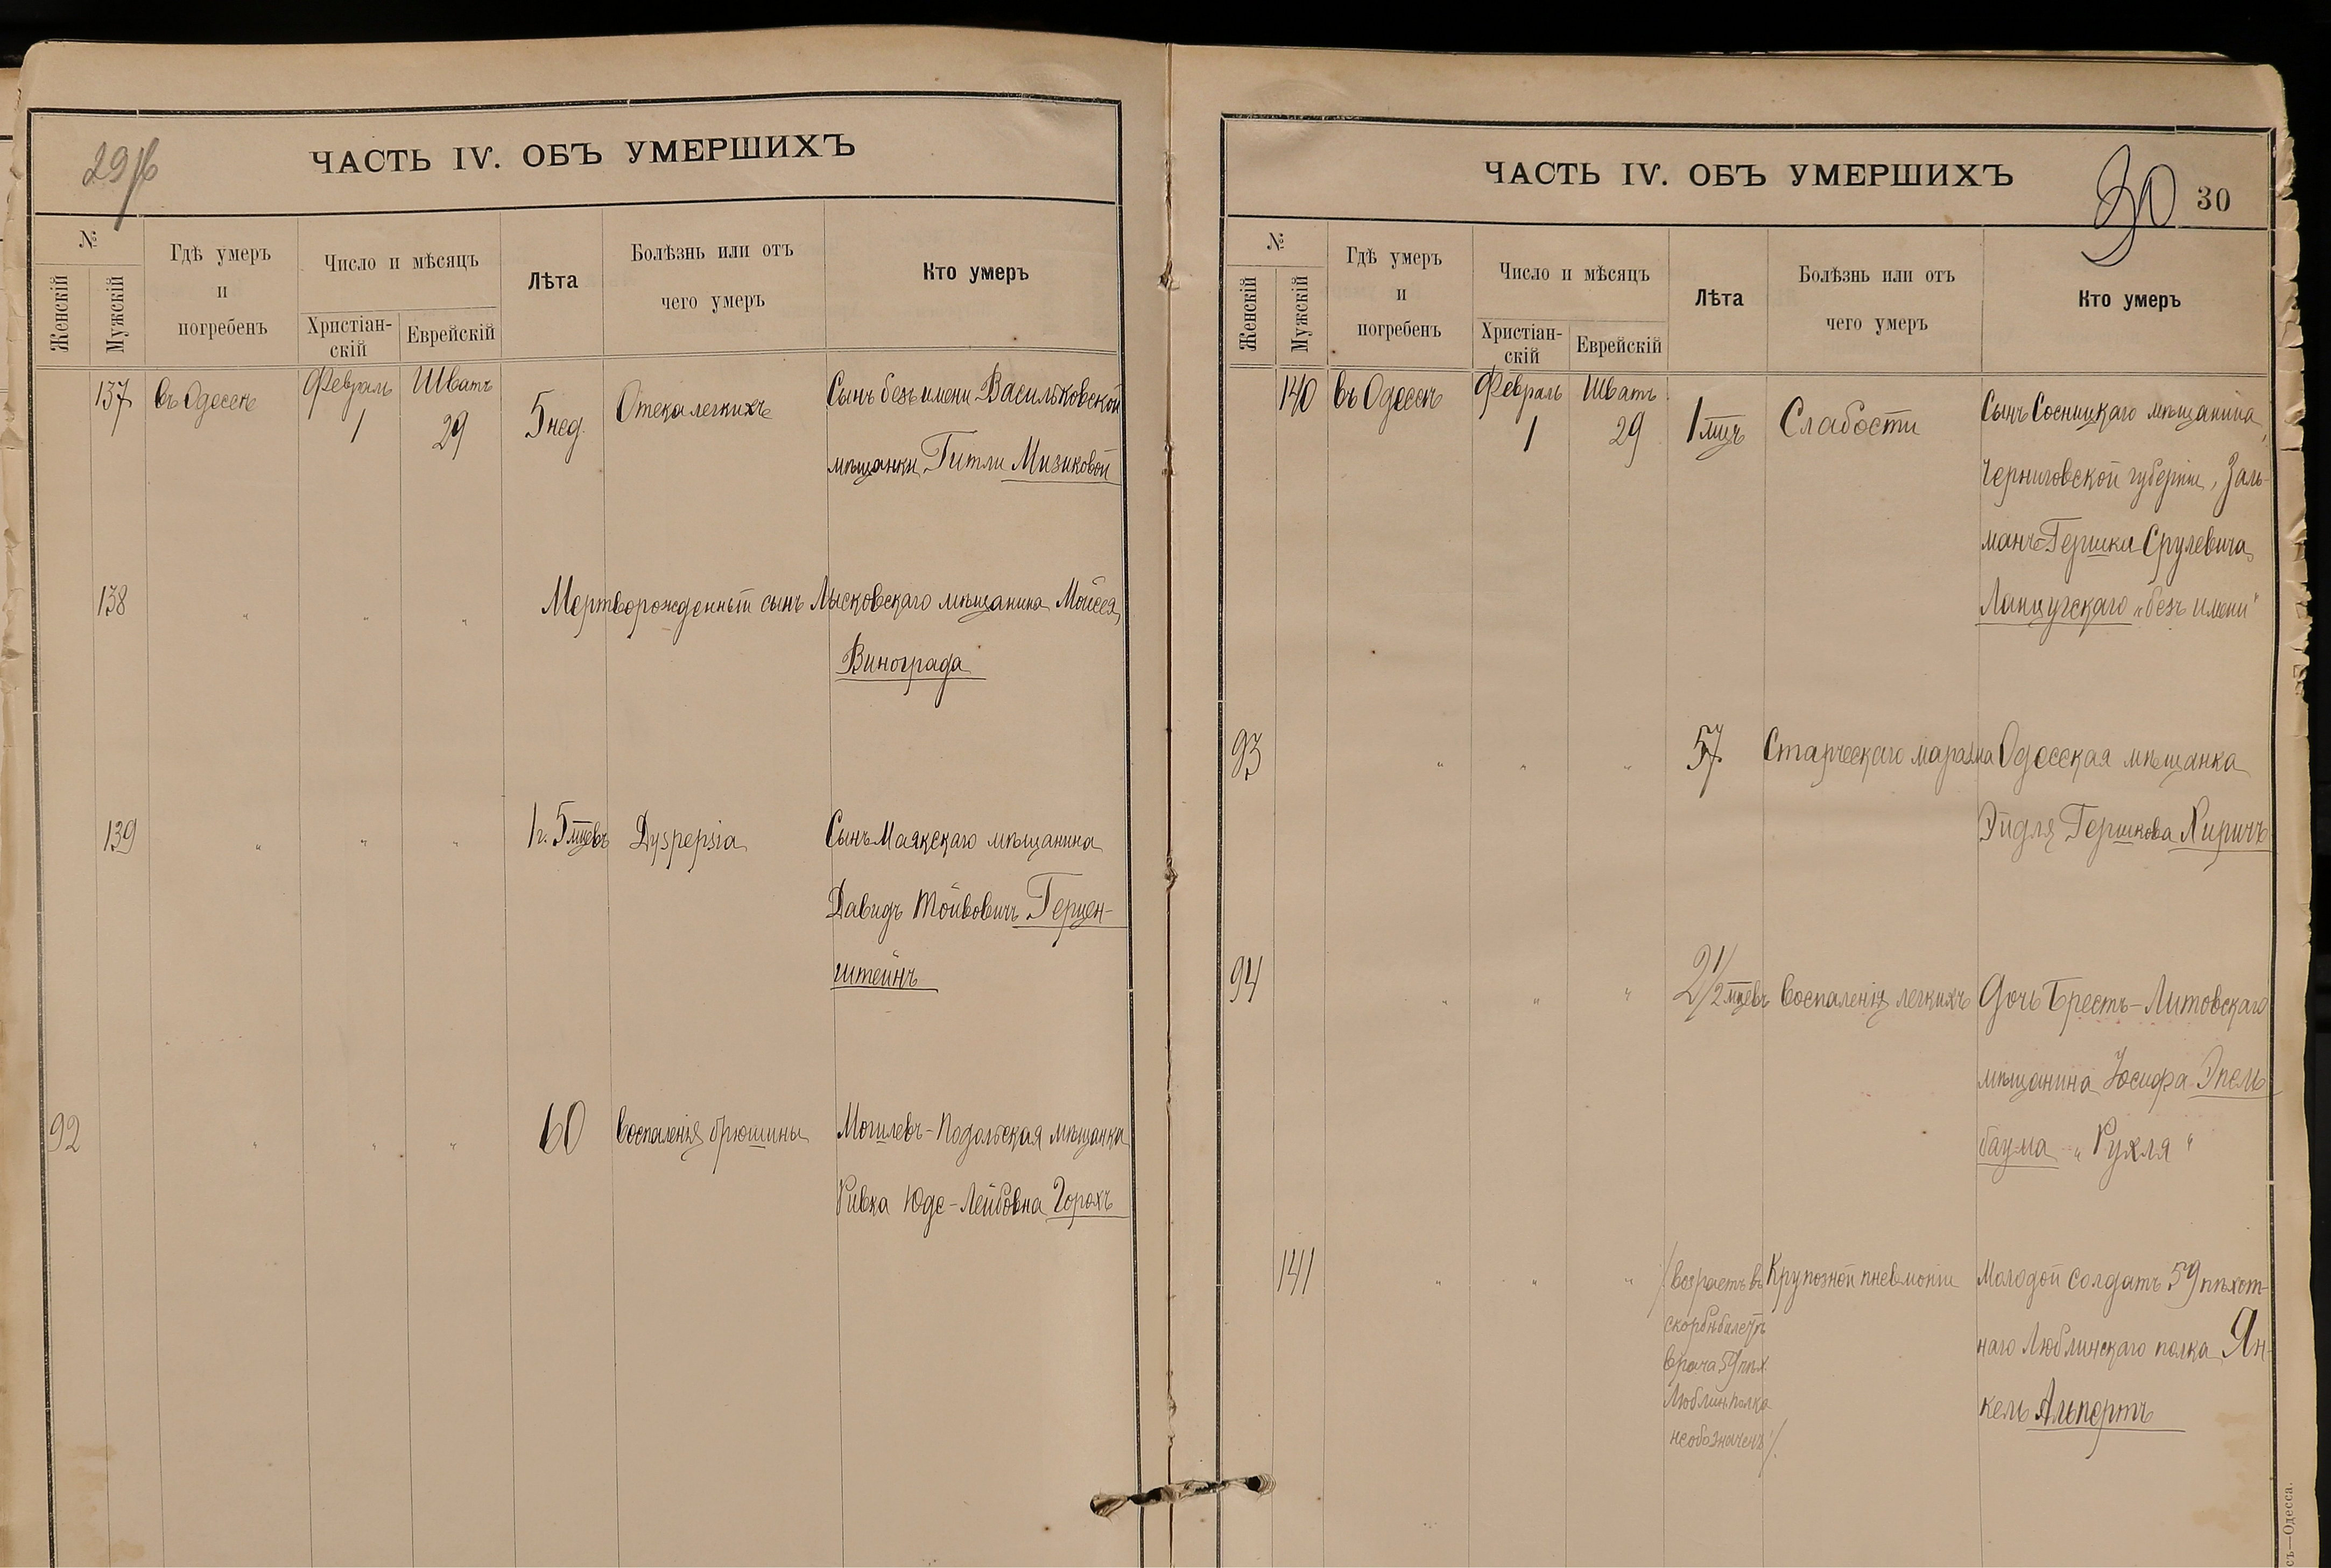 29 об
ЧАСТЬ IV. ОБЪ УМЕРШИХЪ
№
Женскій
Мужскій
Гдѣ умеръ
и
погребенъ
Число и мѣсяцъ
Христіан-
скій
Еврейскій
Лѣта
Болѣзнь или отъ
чего умеръ
Кто умеръ
137 въ Одессѣ Февраль 1 Шватъ 29 5 нед. Отека легкихъ Сынъ безъ имени Васильковской
мѣщанки Гитли Мизиковой
138 " " " Мертворожденный сынъ Лысковскаго мѣщанина Мойсея
Винограда
139 " " " 1 г. 5 мцевъ Dyspepsia Сынъ Маякскаго мѣщанина
Давидъ Тойвовичъ Герцен-
штейнъ
92 " " " 60 Воспаленія брюшины Могилевъ-Подольская мѣщанка
Ривка Юдс-Лейбовна Горохъ
ЧАСТЬ IV. ОБЪ УМЕРШИХЪ
30 30
№
Женскій
Мужскій
Гдѣ умеръ
и
погребенъ
Число и мѣсяцъ
Христіан-
скій
Еврейскій
Лѣта
Болѣзнь или отъ
чего умеръ
Кто умеръ
140 въ Одессѣ Февраль 1 Шватъ 29 1 мцъ Слабости Сынъ Сосницкаго мѣщанина,
Черниговской губерніи, Заль-
манъ-Гершка Срулевича
Ланцугскаго „безъ имени"
93 " " " 57 Старческаго маразма Одесская мѣщанка
Эйдля Гершкова Киричъ
94 " " " 2 1/2 мцевъ Воспаленія легкихъ Дочь Брестъ-Литовскаго
мѣщанина Іосифа Эпель
баума „Рухля"
141 " " " /возрастъ въ Крупозной пневмоніи Молодой солдатъ 59 пѣхот-
скорбн билетѣ
врача 59 пѣх. наго Люблинскаго полка Ян-
Люблин полка
не обозначенъ/. кель Альпертъ
съ—Одесса.